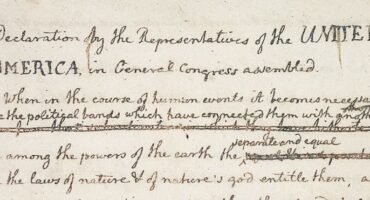 Declaration by the Representatives of the UNITED
AMERICA, in General Congress assembled.
When in the course of human events it becomes necessa
the political bands which have connected them with another
separate and equal
among the powers of the earth the
the laws of nature & of nature's god entitle them, a